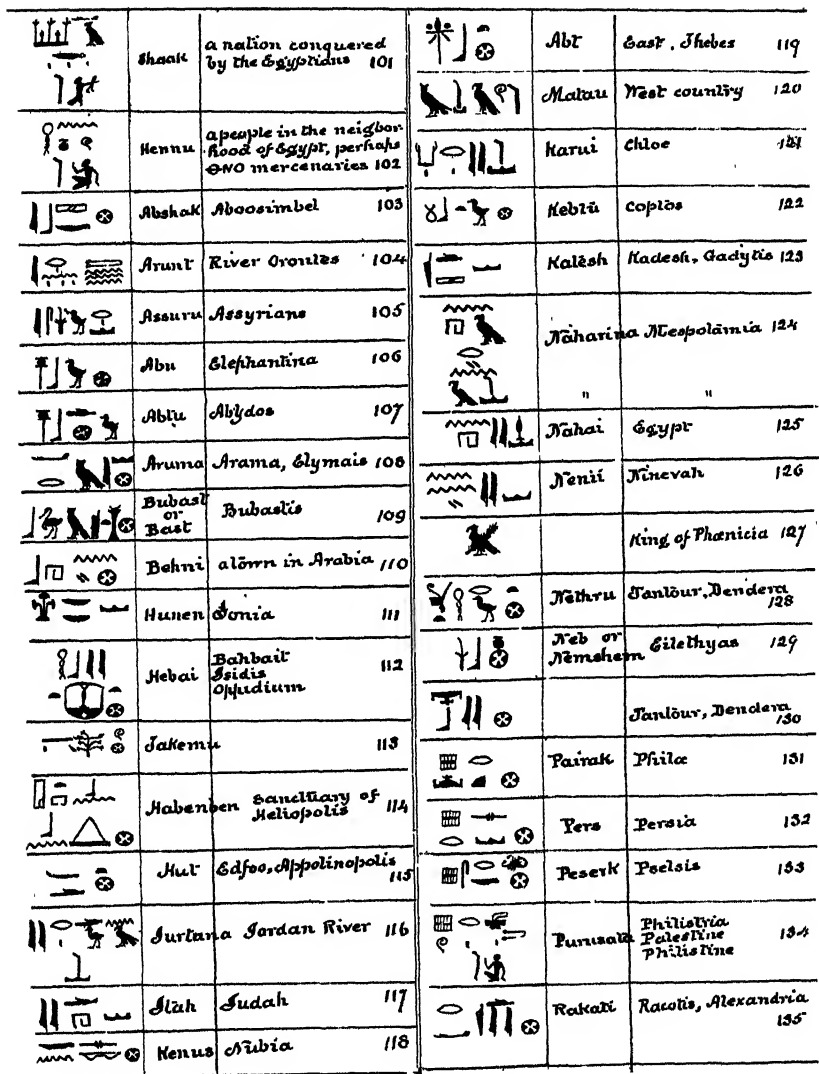 Shaak a nation conquered
by the Egyptians 101
Hennu a people in the neigbor-
hood of Egypt, perhaps
ONO mercenaries 102
Abshak Aboosimbel 103
Arunt River Orontes 104
Assuru Assyrians 105
Abu Elephantina 106
Abtu Abydos 107
Aruma Arama, Elymais 108
Bubast
or
Bast Bubastis 109
Behni a town in Arabia 110
Hunen Ionia 111
Hebai Bahbait
Isidis
Oppudium 112
Takemu 113
Habenben Sanctuary of
Heliopolis 114
Hut Edfoo, Appolinopolis
115
Iurtana Jordan River 116
Iutah Judah 117
Kenus Nubia 118
Abt East, Thebes 119
Matau West country 120
Karui Chloe 121
Kebtu Coptos 122
Katesh Kadesh, Gadytis 123
Naharina Mespotamia 124
" "
Nahai Egypt 125
Nenii Ninevah 126
King of Phœnicia 127
Nethru Tantour, Dendera
128
Neb or
Nemshem Eilethyas 129
Tantour, Dendera
130
Pairak Philæ 131
Pers Persia 132
Peserk Pselsis 133
Purusata Philistria
Palestine
Philistine 134
Rakati Racotis, Alexandria
135